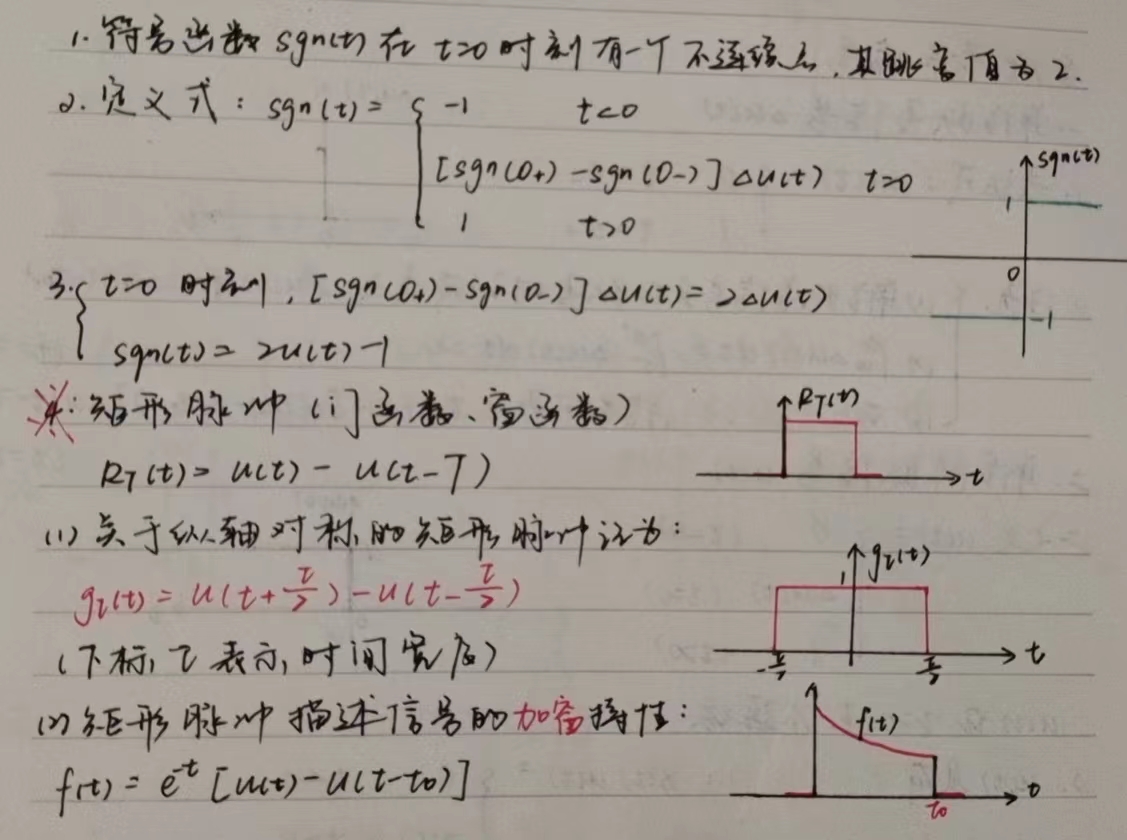 1. 符号函数 sgn(t) 在 t=0 时刻有一个不连续点，其跳变值为 2.
2. 定义式：sgn(t) = { -1    t<0
[sgn(0+) - sgn(0-)] Δu(t)    t=0
1    t>0
sgn(t)
1
0
-1
3. { t=0 时刻，[sgn(0+) - sgn(0-)] Δu(t) = 2Δu(t)
sgn(t) = 2u(t) - 1
4. 矩形脉冲（门函数、窗函数）
RT(t)
RT(t) = u(t) - u(t-T)
t
(1) 关于纵轴对称的矩形脉冲记为：
gτ(t)
1
gτ(t) = u(t+τ/2) - u(t-τ/2)
（下标 τ 表示时间宽度）
t
-τ/2
τ/2
(2) 矩形脉冲描述信号的加窗特性：
f(t)
f(t) = e^-t [u(t) - u(t-t0)]
t0